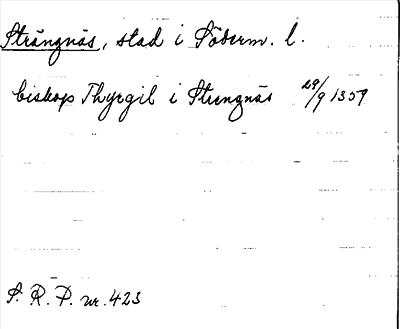 Strängnäs, stad i Söderm. l.
biskop Thyrgil i Strengnäs 29/9 1359
S. R. P. nr. 423